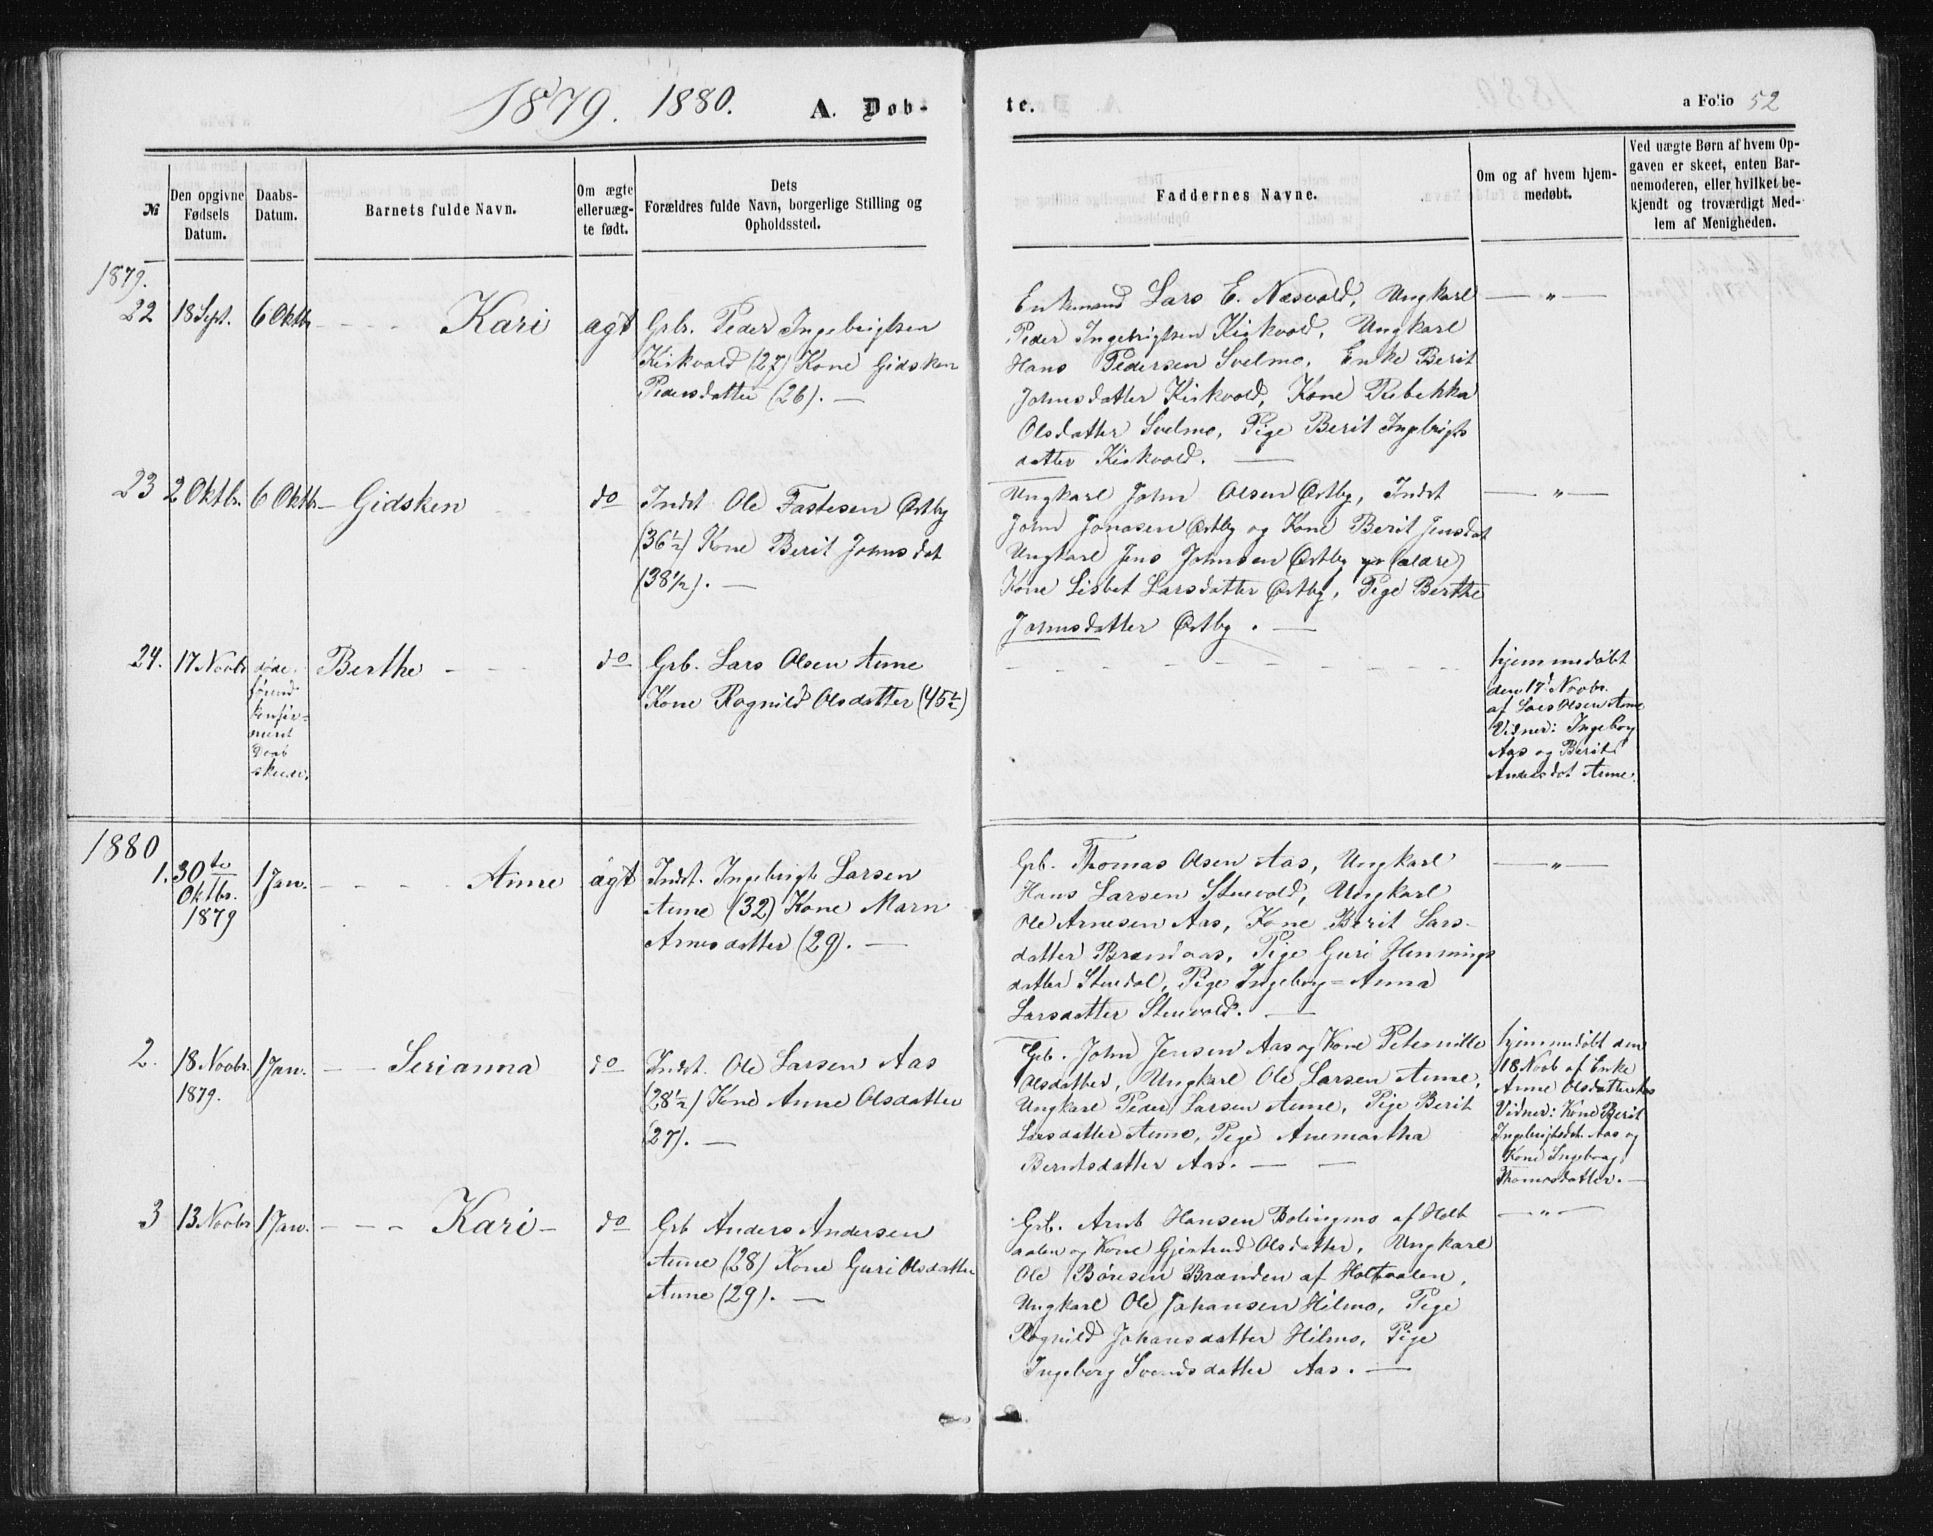 1879. 1880. A. Døb-
te. a Folio 52
№
Den opgivne
Fødsels
Datum.
Daabs-
Datum.
Barnets fulde Navn.
Om ægte
eller uæg-
te født.
Dets
Forældres fulde Navn, borgerlige Stilling og
Opholdssted.
Faddernes Navne.
Om og af hvem hjem-
medøbt.
Ved uægte Børn af hvem Op-
gaven er skeet, enten Bar-
nemoderen, eller hvilket be-
kjendt og troværdigt Med-
lem af Menigheden.
1879.
22 18 Sept. 6 Oktbr - - - Kari ægt
Grbr. Peder Ingebrigtsen
Kirkvold (27) Kone Gidsken
Pedersdatter (26). —
Enkemand Lars E. Næsvold, Ungkarl
Peder Ingebrigtsen Kirkvold, Ungkarl
Hans Pedersen Svelmo, Enke Berit
Johnsdatter Kirkvold, Kone Rebekka
Olsdatter Svelmo, Pige Berit Ingebrigts
datter Kirkvold. —
— „ —
23 2 Oktbr. 6 Oktbr. - Gidsken do
Indst. Ole Fastesen Østby
(36½) Kone Berit Johnsdat
(38½). —
Ungkarl John Olsen Østby, Indst
John Jonasen Østby og Kone Berit Jensdat
Ungkarl Jens Johnsen Østby (ældre)
Kone Lisbet Larsdatter Østby, Pige Berthe
Johnsdatter Østby. —
— „ —
24. 17 Novbr
døde
førend
konfir-
meret
Daab
skeede.
Berthe - - - do
Grb. Lars Olsen Aune
Kone Ragnild Olsdatter (45½)
hjemmedøbt
den 17d Novbr.
af Lars Olsen Aune
Vidner: Ingeborg
Aas og Berit
Andersdat Aune.
1880
1. 30te
Oktbr.
1879
1 Jan. - - - - Aune ægt
Indst. Ingebrigt Larsen
Aune (32) Kone Marn
Arnesdatter (29). —
Grb. Thomas Olsen Aas, Ungkarl
Hans Larsen Stuevold, Ungkarl
Ole Arnesen Aas, Kone Berit Lars-
datter Brændaas, Pige Guri Hennings
datter Stuedal, Pige Ingeborg-Anna
Larsdatter Stuevold. —
— „ —
2. 18 Novbr.
1879.
1 Jan. - - Serianna do
Indst. Ole Larsen Aas
(28½) Kone Anne Olsdatter
(27). —
Grb. John Jensen Aas og Kone Peternille
Olsdatter, Ungkarl Ole Larsen Aune,
Ungkarl Peder Larsen Aune, Pige Berit
Larsdatter Aune, Pige Anemartha
Berntsdatter Aas. — —
hjemmedøbt den
18 Novb af Enke
Anne Olsdatter Aas
Vidner: Kone Berit
Ingebrigtsdat. Aas og
Kone Ingeborg
Thomasdatter. —
3 13 Novbr 1 Jan. - - - Kari - do
Grb Anders Andersen
Aune (28) Kone Guri Olsdatter
Aune (29). —
Grb. Arnt Hansen Bolingmo af Holt
aalen og Kone Gjertrud Olsdatter, Ungkarl
Ole Børesen Brænden af Holtaalen,
Ungkarl Ole Johansen Hilmo, Pige
Ragnild Johansdatter Hilmo, Pige
Ingeborg Svendsdatter Aas. —
— „ —